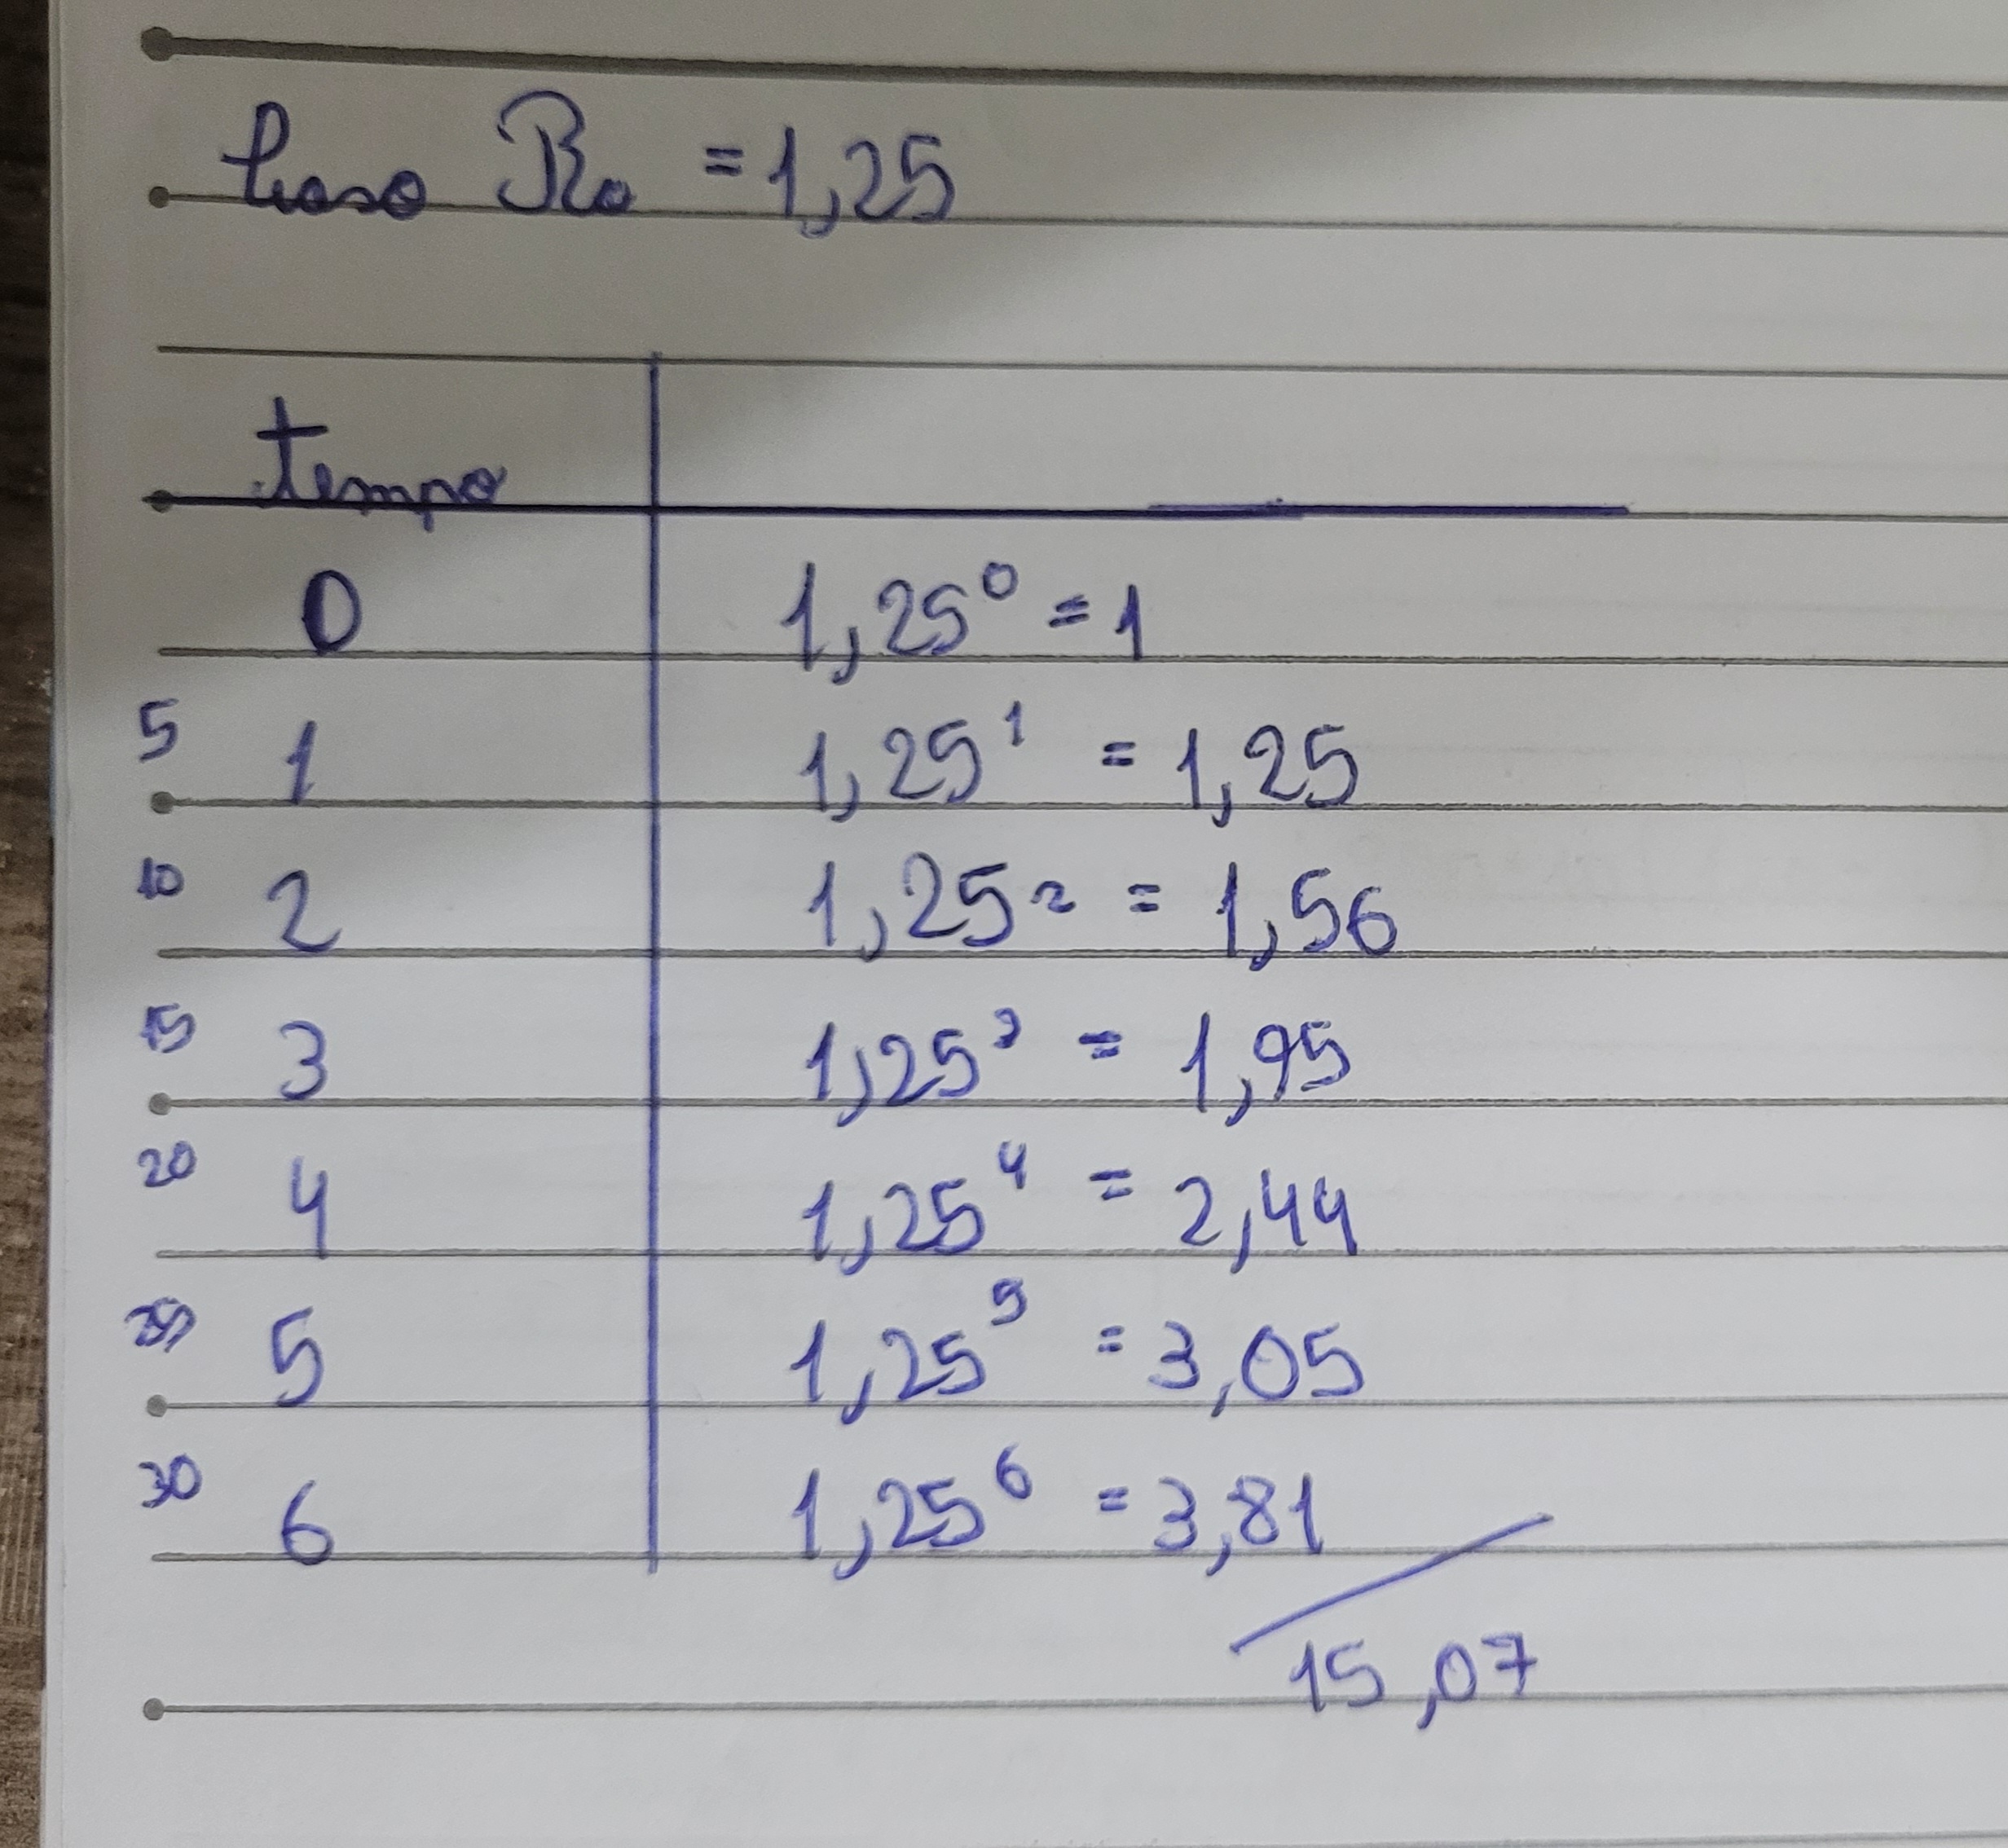 Caso R₀ = 1,25
tempo
0 1,25⁰ = 1
5 1 1,25¹ = 1,25
10 2 1,25² = 1,56
15 3 1,25³ = 1,95
20 4 1,25⁴ = 2,44
25 5 1,25⁵ = 3,05
30 6 1,25⁶ = 3,81
15,07